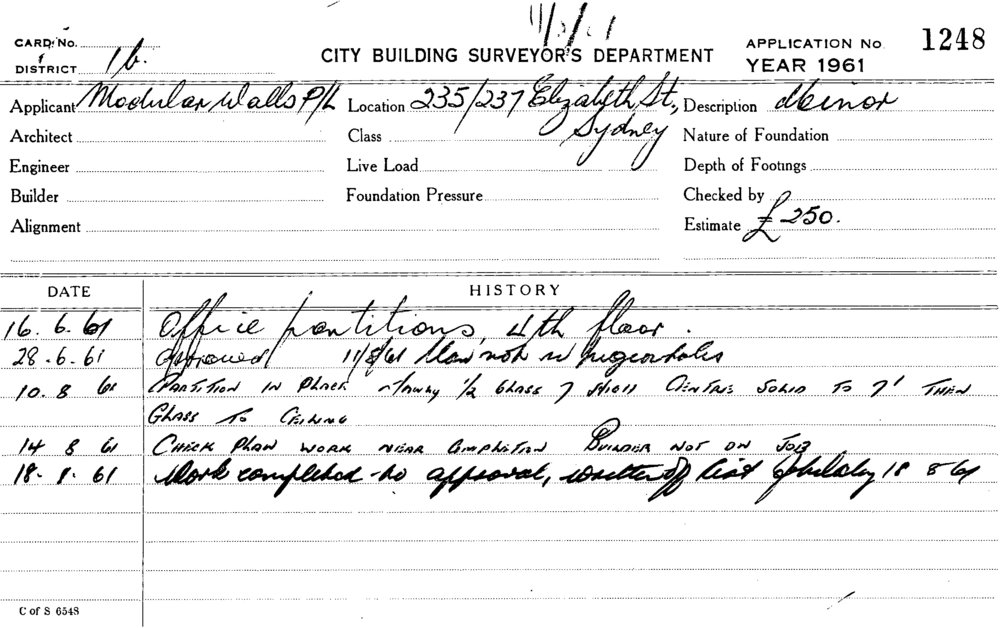 11/8/61
CARD No.
DISTRICT 1b.
CITY BUILDING SURVEYOR'S DEPARTMENT
APPLICATION No. 1248
YEAR 1961
Applicant Modular Walls P/L Location 235/237 Elizabeth St., Description Minor
Sydney
Architect Class Nature of Foundation
Engineer Live Load Depth of Footings
Builder Foundation Pressure Checked by
Alignment Estimate £250.
DATE HISTORY
16. 6. 61 Office partitions, 4th floor.
28-6.61 Approved 11/8/61 Plan not in pigeonholes
10. 8 61 PARTITION IN PLACE 1/2 GLASS 7' HIGH CENTRE SOLID TO 7' THEN
GLASS TO CEILING
14 8 61 CHECK PLAN WORK NEAR COMPLETION BUILDER NOT ON JOB
18. 8. 61 Work completed - no approval, written off list 18 8 61
C of S 6548